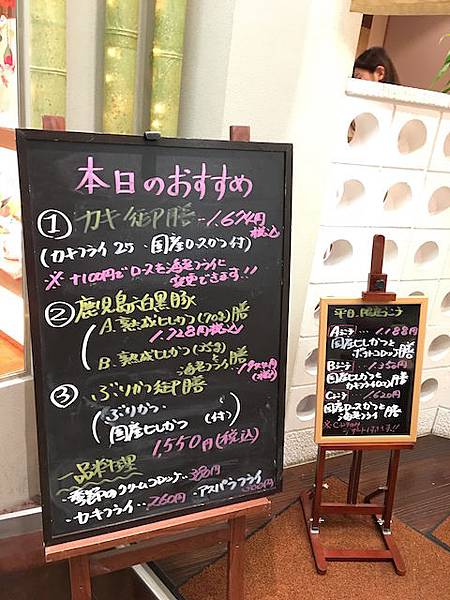 本日のおすすめ
① カキ御膳 - 1.674円 税込
(カキフライ2ケ・国産ロースかつ付)
※+100円でロースを海老フライに
変更できます!!
② 鹿児島六白黒豚
A.熟成ヒレかつ(70g)膳
1.728円税込
B.熟成ヒレかつ(35g)
と海老フライ膳
(税込)
③ ぶりかつ御膳
(ぶりかつ・
国産ヒレかつ (付)
1.550円(税込)
一品料理
・季節のクリームコロッケ
・カキフライ…260円 ・アスパラフライ
平日
A 1.188円
国産ヒレかつと
ポテトコロッケ膳
B 1.350円
国産ヒレかつと
膳
C 1.620円
国産ロースかつと
海老フライ膳